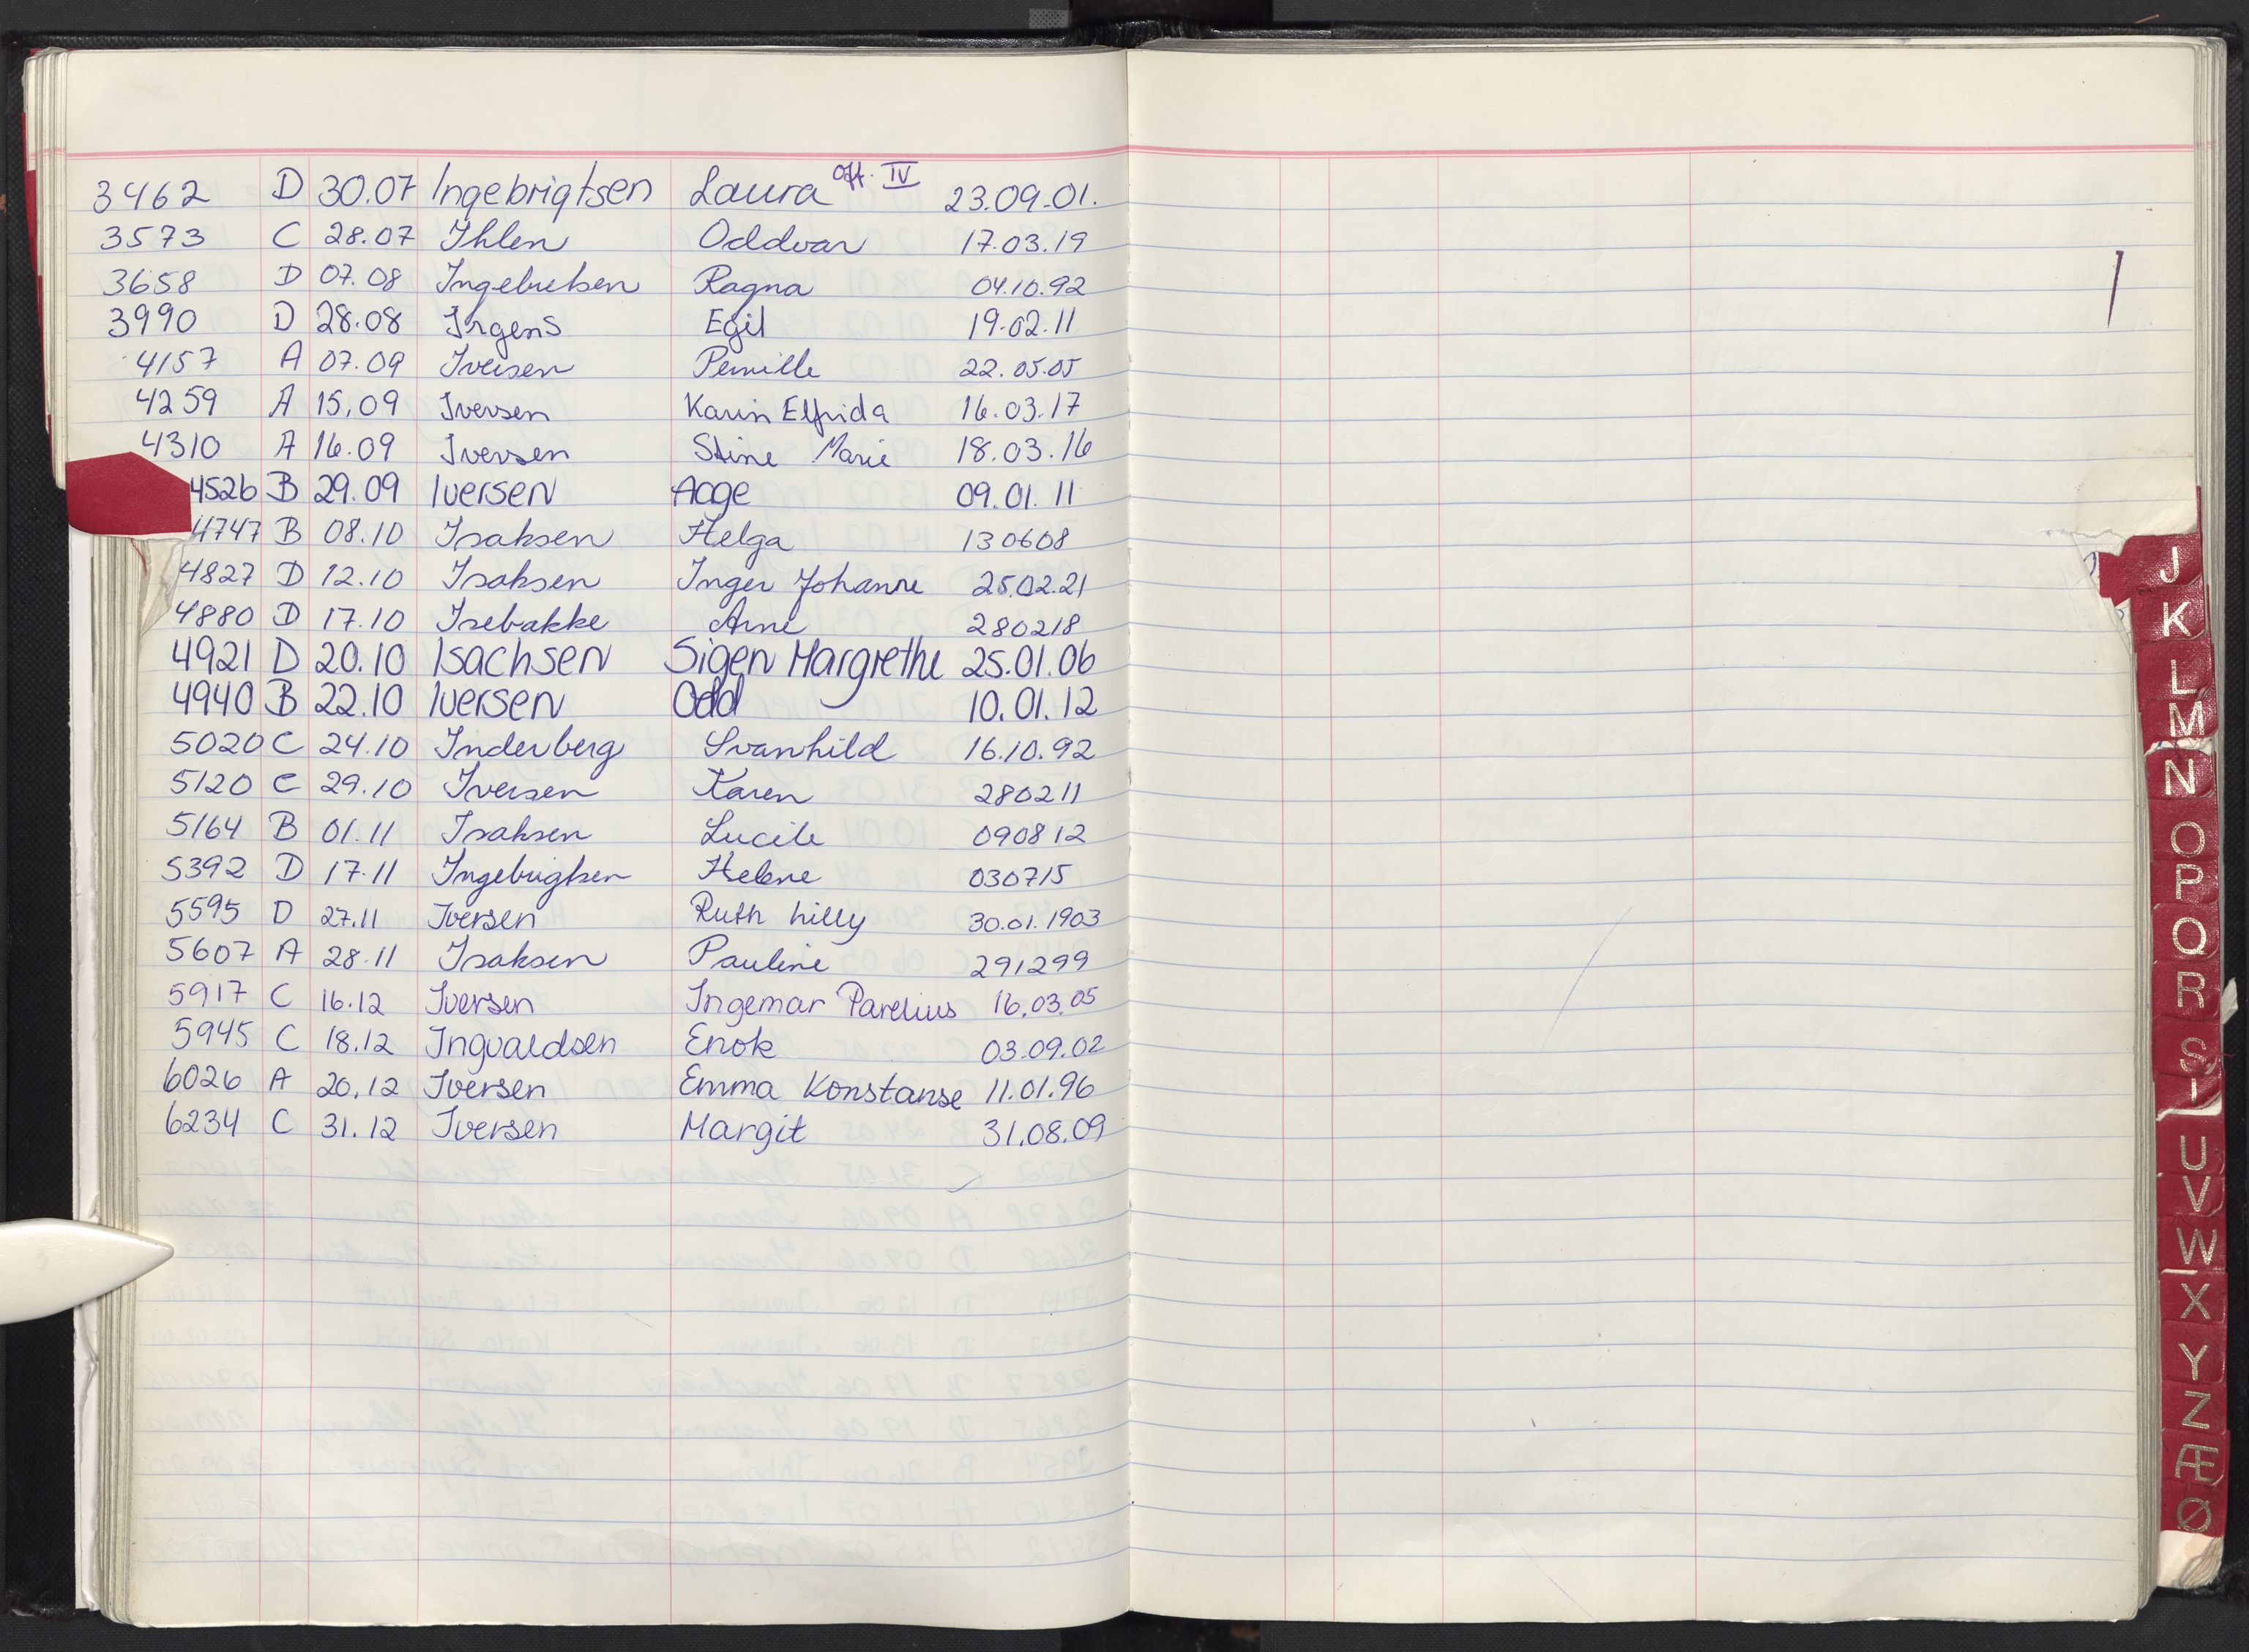 3462 D 30.07 Ingebrigtsen Laura Off. IV 23.09.01.
3573 C 28.07 Ihlen Oddvar 17.03.19
3658 D 07.08 Ingebretsen Ragna 04.10.92
3990 D 28.08 Irgens Egil 19.02.11
4157 A 07.09 Iversen Pernille 22.05.05
4259 A 15.09 Iversen Karin Elfrida 16.03.17
4310 A 16.09 Iversen Stine Marie 18.03.16
4526 B 29.09 Iversen Aage 09.01.11
4747 B 08.10 Isaksen Helga 130608
4827 D 12.10 Isaksen Inger Johanne 25.02.21
4880 D 17.10 Isebakke Arne 280218
4921 D 20.10 Isachsen Sigen Margrethe 25.01.06
4940 B 22.10 Iversen Odd 10.01.12
5020 C 24.10 Inderberg Svanhild 16.10.92
5120 C 29.10 Iversen Karen 280211
5164 B 01.11 Isaksen Lucile 090812
5392 D 17.11 Ingebrigtsen Helene 030715
5595 D 27.11 Iversen Ruth Lilly 30.01.1903
5607 A 28.11 Isaksen Pauline 291299
5917 C 16.12 Iversen Ingemar Parelius 16.03.05
5945 C 18.12 Ingvaldsen Enok 03.09.02
6026 A 20.12 Iversen Emma Konstanse 11.01.96
6234 C 31.12 Iversen Margit 31.08.09
J
K
L
M
N
O
P
Q
R
S
U
V
W
X
Y
Z
Æ
Ø